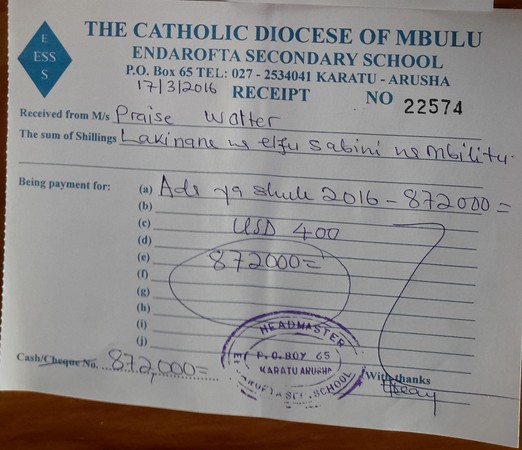 E
ESS
S
THE CATHOLIC DIOCESE OF MBULU
ENDAROFTA SECONDARY SCHOOL
P.O. Box 65 TEL: 027 - 2534041 KARATU - ARUSHA
17/3/2016 RECEIPT NO 22574
Received from M/s Praise Walter
The sum of Shillings Lakinane na elfu sabini na mbili tu.
Being payment for: (a) Ada ya shule 2016 - 872000=
(b)
(c) USD 400
(d)
(e) 872000=
(f)
(g)
(h)
(i)
(j)
HEADMASTER
P.O. BOX 65
KARATU ARUSHA
Cash/Cheque No. 872,000=
With thanks